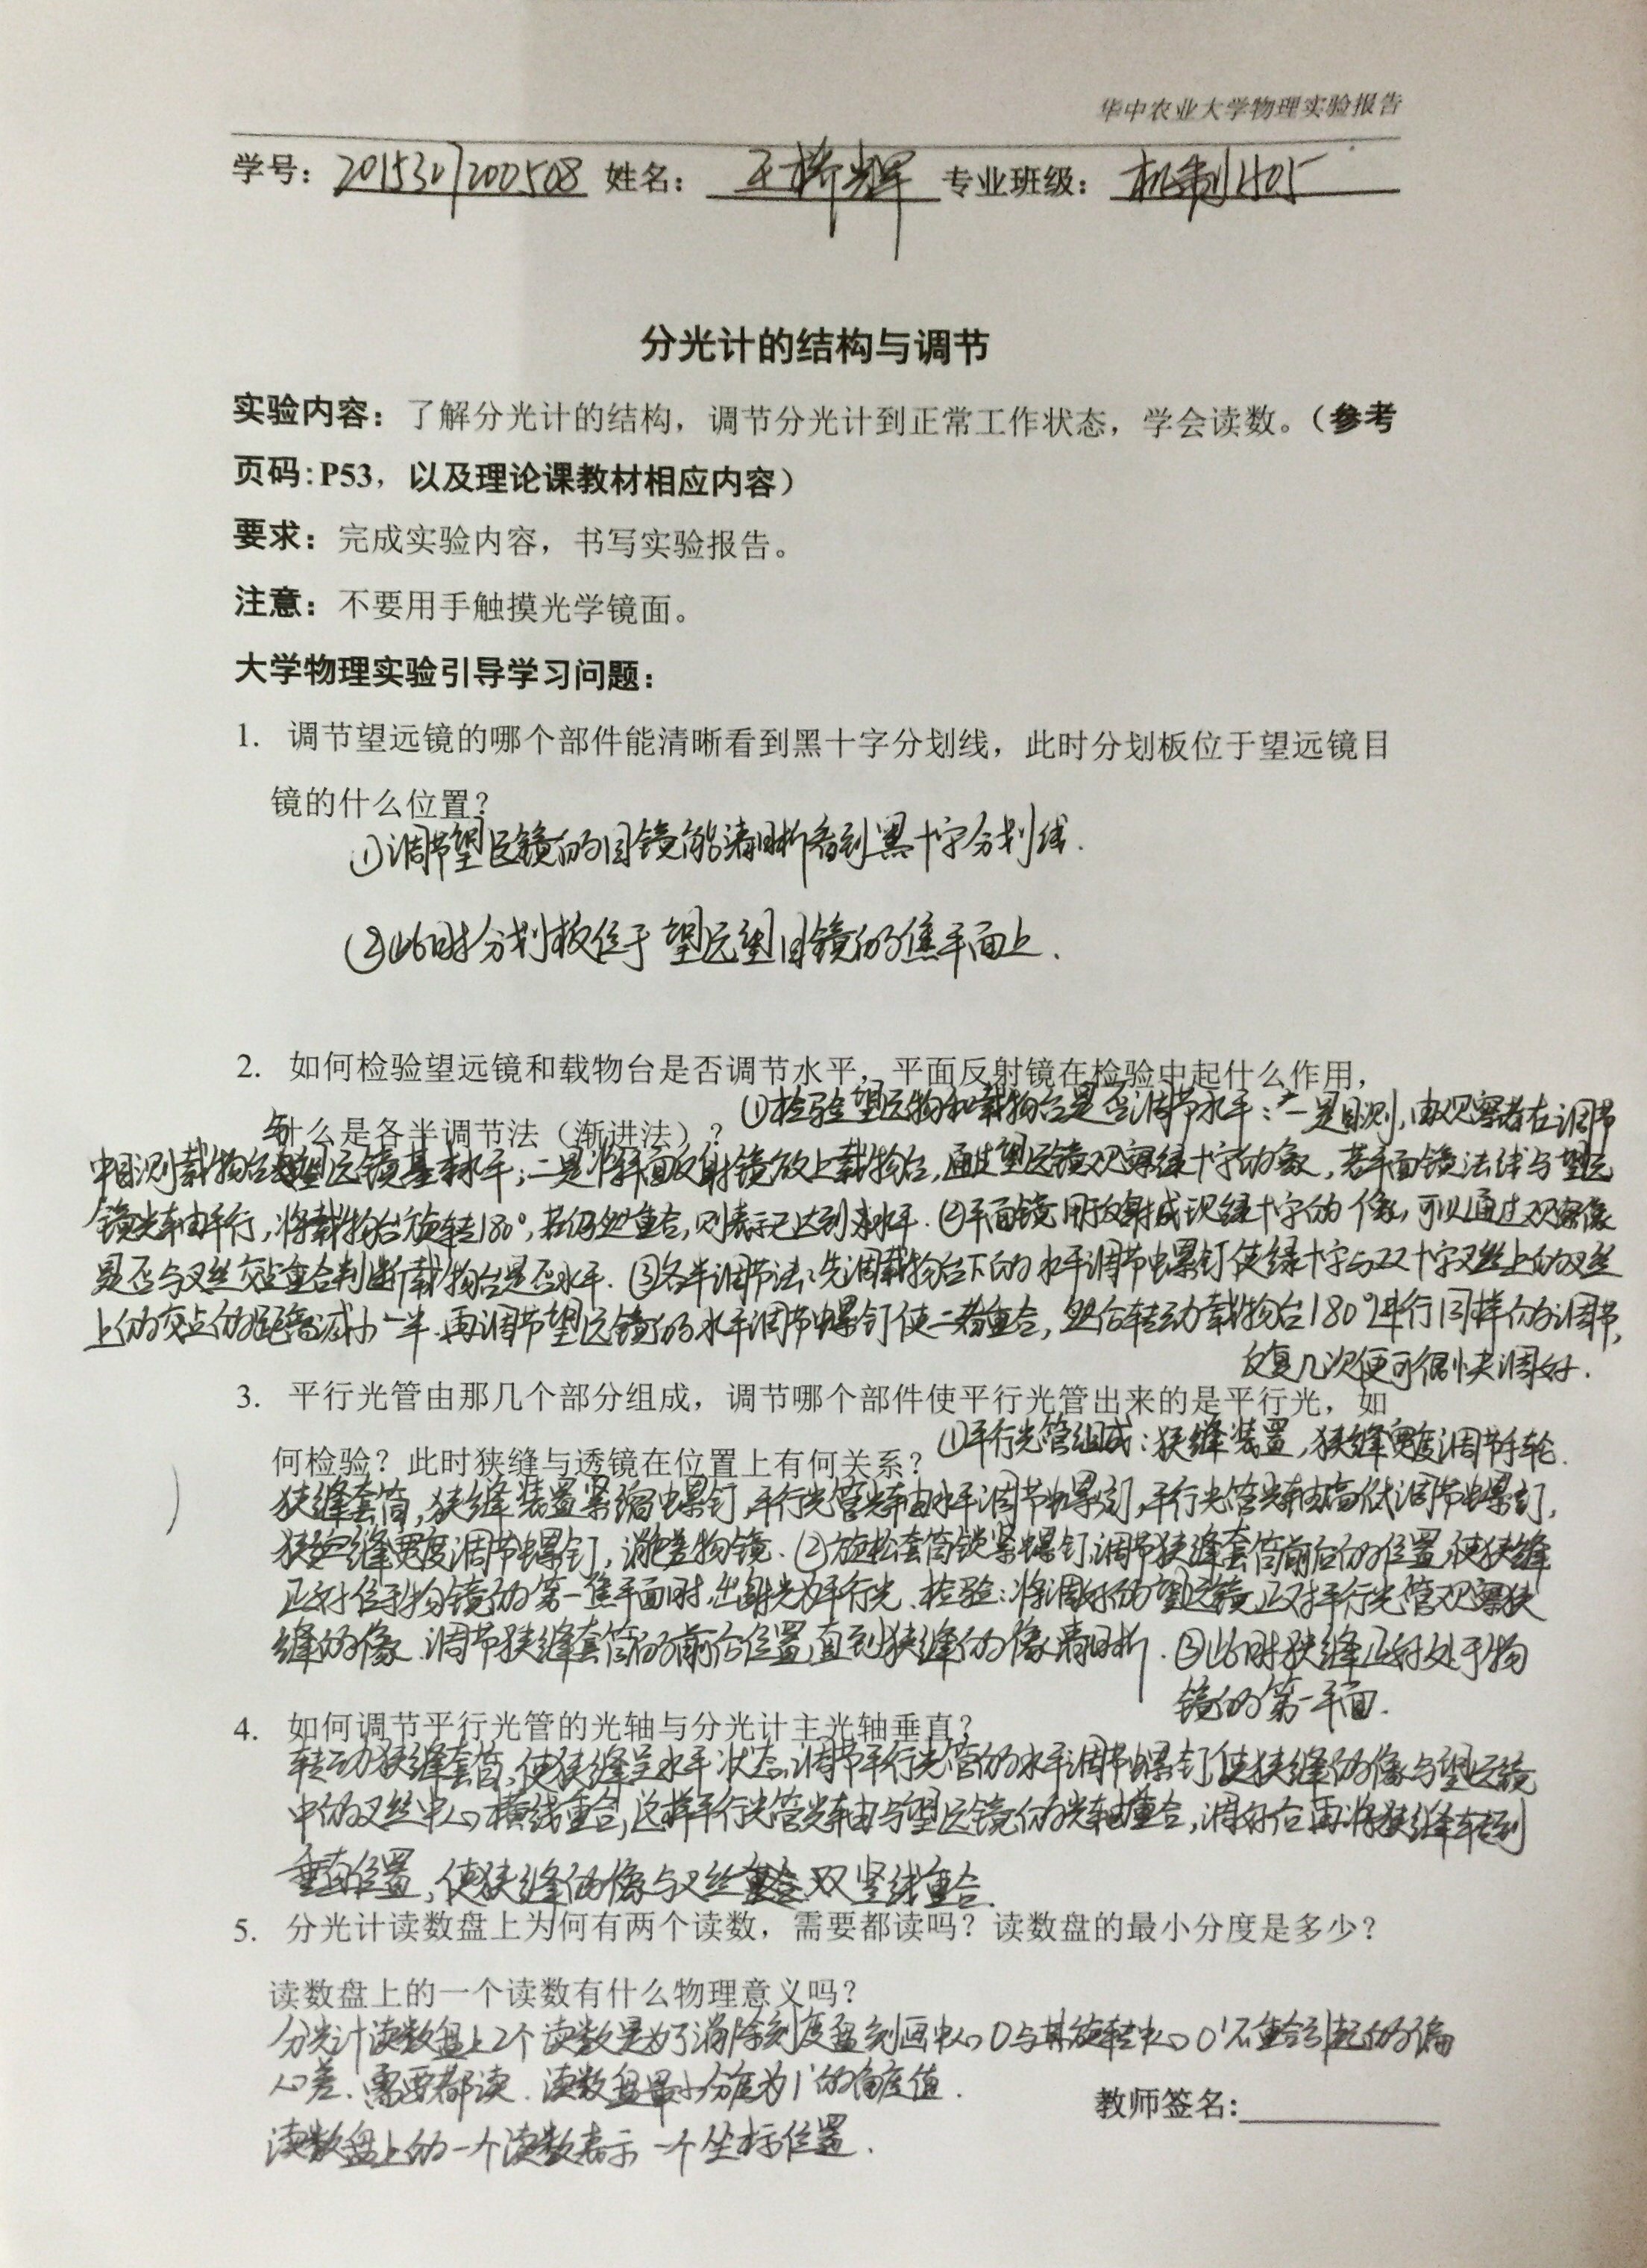 华中农业大学物理实验报告
学号：2015307200508 姓名：王桥辉 专业班级：机制1505
分光计的结构与调节
实验内容：了解分光计的结构，调节分光计到正常工作状态，学会读数。（参考
页码：P53，以及理论课教材相应内容）
要求：完成实验内容，书写实验报告。
注意：不要用手触摸光学镜面。
大学物理实验引导学习问题：
1. 调节望远镜的哪个部件能清晰看到黑十字分划线，此时分划板位于望远镜目
镜的什么位置？
①调节望远镜的目镜能清晰看到黑十字分划线.
②此时分划板位于望远望目镜的焦平面上.
2. 如何检验望远镜和载物台是否调节水平，平面反射镜在检验中起什么作用，
什么是各半调节法（渐进法）？ ①检验望远物和载物台是否调节水平：一是目测，由观察者在调节
中目测载物台与望远镜基本水平；二是将平面反射镜放上载物台，通过望远镜观察绿十字的象，若平面镜法线与望远
镜光轴平行，将载物台旋转180°，若仍然重合，则表示已达到水平.②平面镜用于反射成现绿十字的像，可以通过观察像
是否与叉丝交点重合判断载物台是否水平.③各半调节法：先调载物台下的水平调节螺钉使绿十字与双十字叉丝上的叉丝
上的交点的距离减小一半.再调节望远镜的水平调节螺钉使二者重合，然后转动载物台180°进行同样的调节，
反复几次便可很快调好.
3. 平行光管由那几个部分组成，调节哪个部件使平行光管出来的是平行光，如
何检验？此时狭缝与透镜在位置上有何关系？ ①平行光管组成：狭缝装置，狭缝宽度调节手轮.
狭缝套筒，狭缝装置紧缩螺钉，平行光管光轴水平调节螺钉，平行光管光轴高低调节螺钉，
狭缝宽度调节螺钉，消色差物镜.②旋松套筒锁紧螺钉，调节狭缝套筒前后的位置，使狭缝
正好位于物镜的第一焦平面时，出射光为平行光.检验：将调好的望远镜正对平行光管观察狭
缝的像.调节狭缝套筒的前后位置，直到狭缝的像清晰.③此时狭缝正好处于物
镜的第一平面.
4. 如何调节平行光管的光轴与分光计主光轴垂直？
转动狭缝套筒，使狭缝呈水平状态，调节平行光管的水平调节螺钉，使狭缝的像与望远镜
中的叉丝中心横线重合，这样平行光管光轴与望远镜的光轴重合，调好后再将狭缝转到
垂直位置，使狭缝的像与叉丝双竖线重合.
5. 分光计读数盘上为何有两个读数，需要都读吗？读数盘的最小分度是多少？
读数盘上的一个读数有什么物理意义吗？
分光计读数盘上2个读数是为了消除刻度盘刻画中心O与其旋转中心O'不重合引起的偏
心差.需要都读.读数盘最小分度为1'的角度值.
教师签名：
读数盘上的一个读数表示一个坐标位置.